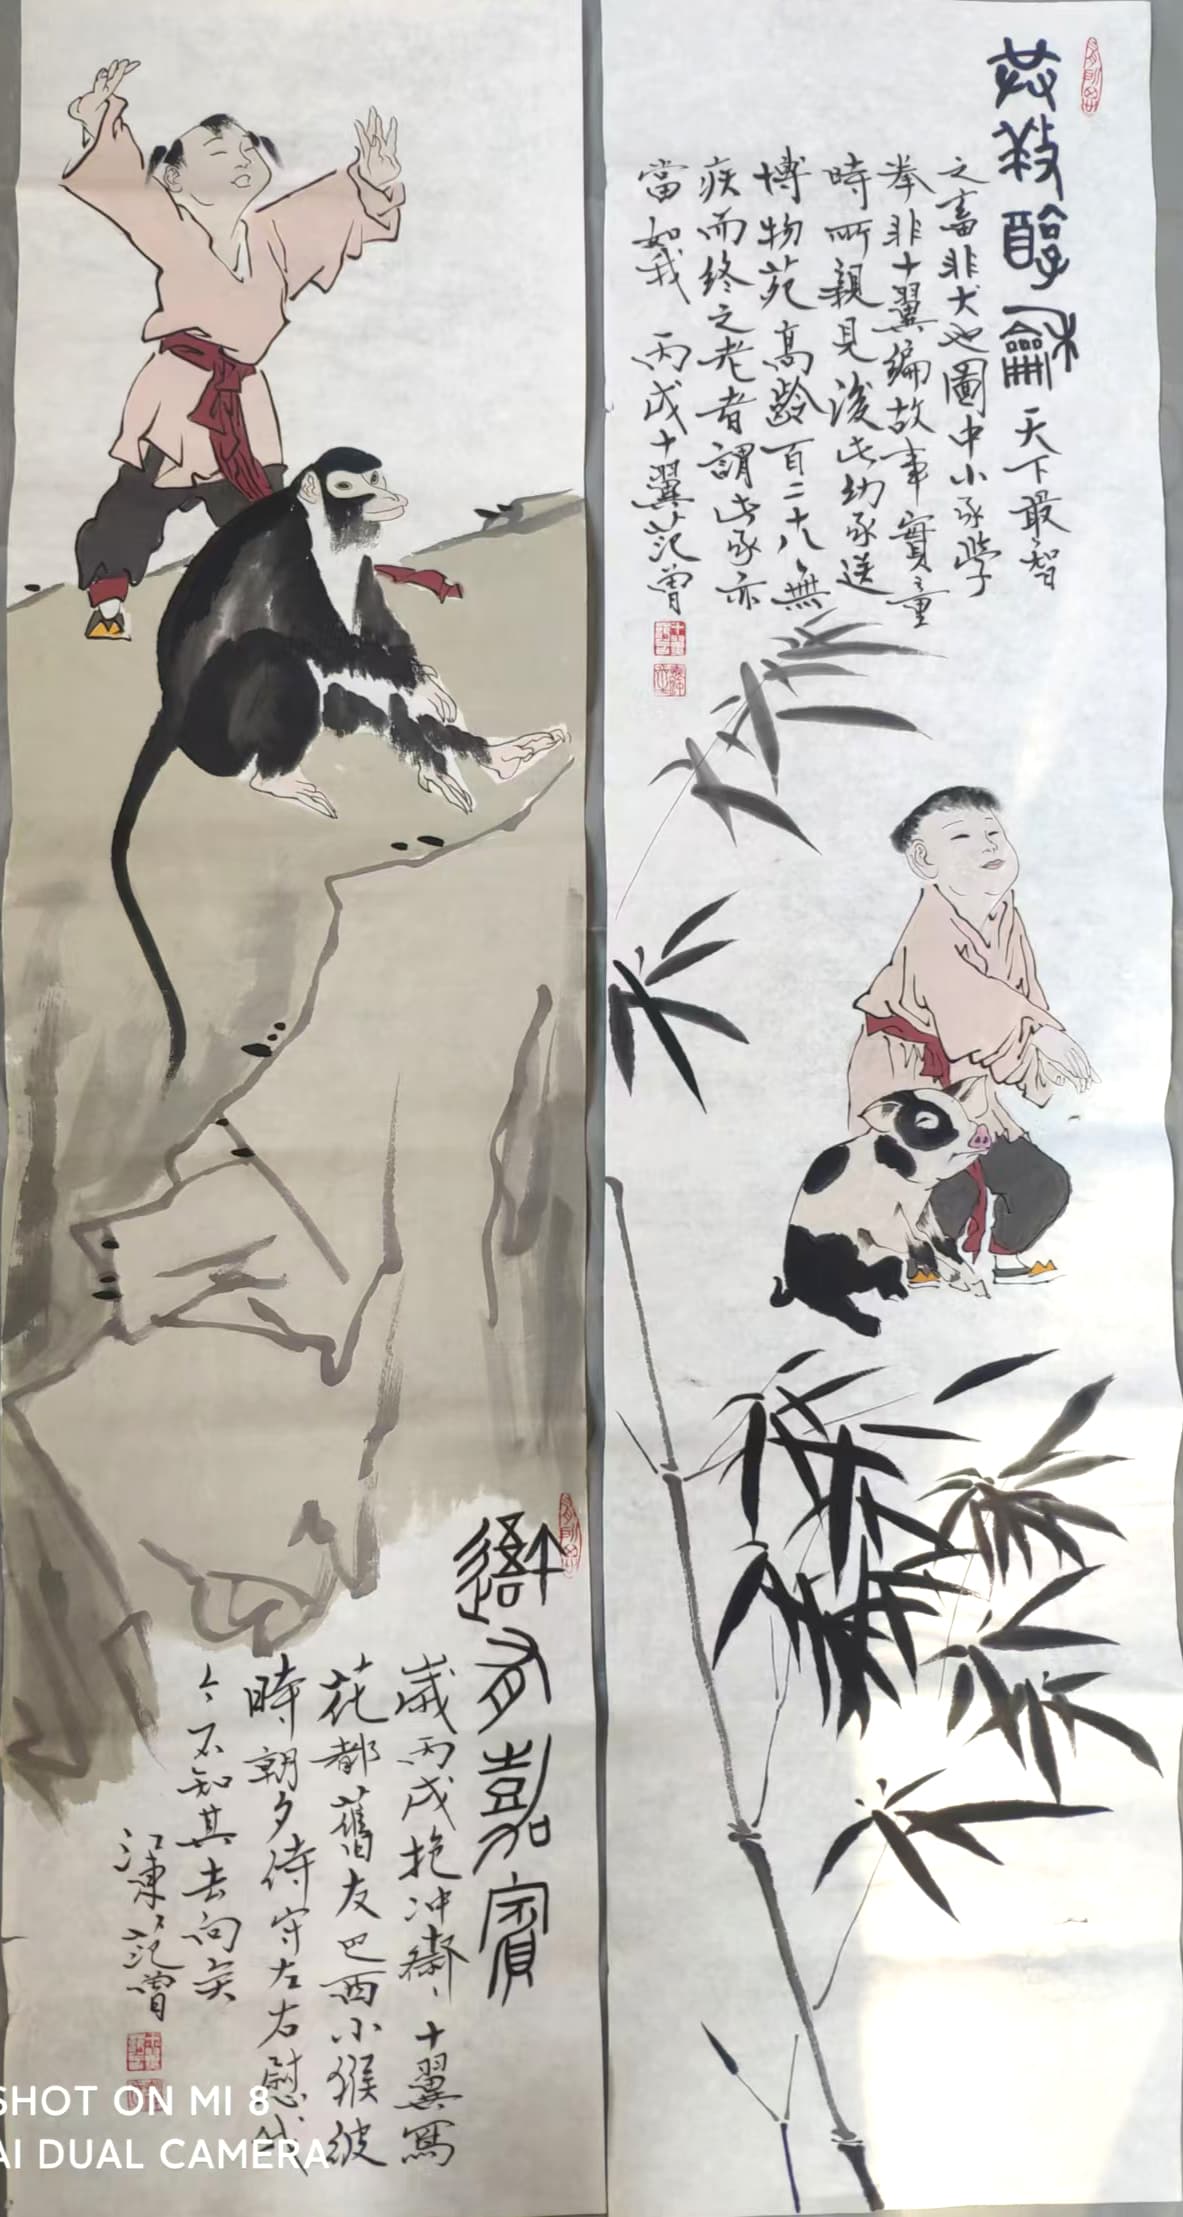 醇龢天下最智
之畜非犬也圖中小豕學
拳非十翼編故事實童
時所親見後此幼豕送
博物苑高齡百二十八無
疾而終之老者謂此豕亦
當如我 丙戌十翼范曾
有嘉賓
歲丙戌抱冲齋十翼寫
花都舊友巴西小猴彼
時朝夕侍守左右慰我
今不知其去向矣
江東范曾
SHOT ON MI 8
AI DUAL CAMERA